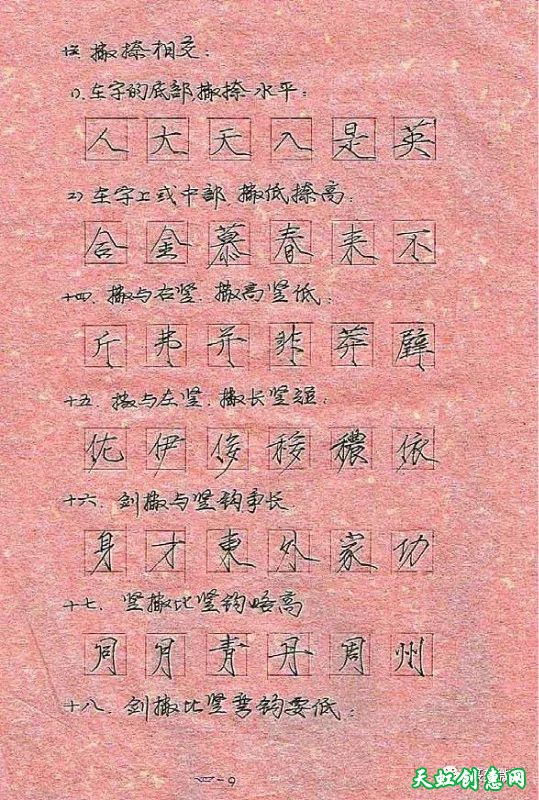 十三. 撇捺相交:
1). 在字的底部, 撇捺水平:
人 大 天 入 是 英
2) 在字上或中部 撇低捺高:
合 金 慕 春 来 不
十四. 撇与右竖. 撇高竖低:
斤 弗 并 非 莽 檗
十五. 撇与左竖. 撇长竖短:
伍 伊 侈 移 穠 依
十六. 剑撇与竖钩争长
身 才 東 外 家 功
十七. 竖撇比竖钩略高
同 月 青 丹 周 州
十八. 剑撇比竖弯钩要低:
四-9
天虹创意网